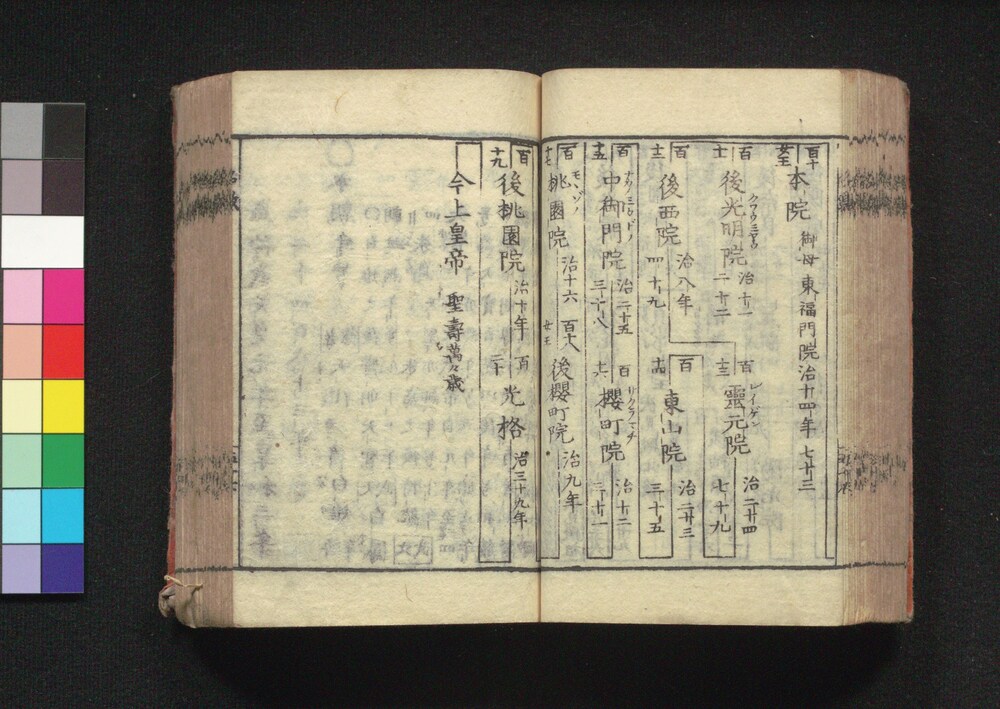 百十
女王
本院 御母東福門院治十四年 七十三
百
十一
後光明院 クワウミヤウ 治十一
二十二
百
十三
靈元院 レイゲン 治二十四
七十九
百
十二
後西院 治八年
四十九
百
十四
東山院 治二十三
三十五
百
十五
中御門院 ナカミカドノ 治二十五
三十八
百
十六
櫻町院 サクラマチ 治十二
三十一
百
十七
桃園院 モヽゾノ 治十六
百十八
女王
後櫻町院 治九年
百
十九
後桃園院 治十年
百
二十
光格 治三十九年
今上皇帝 聖壽萬々歳